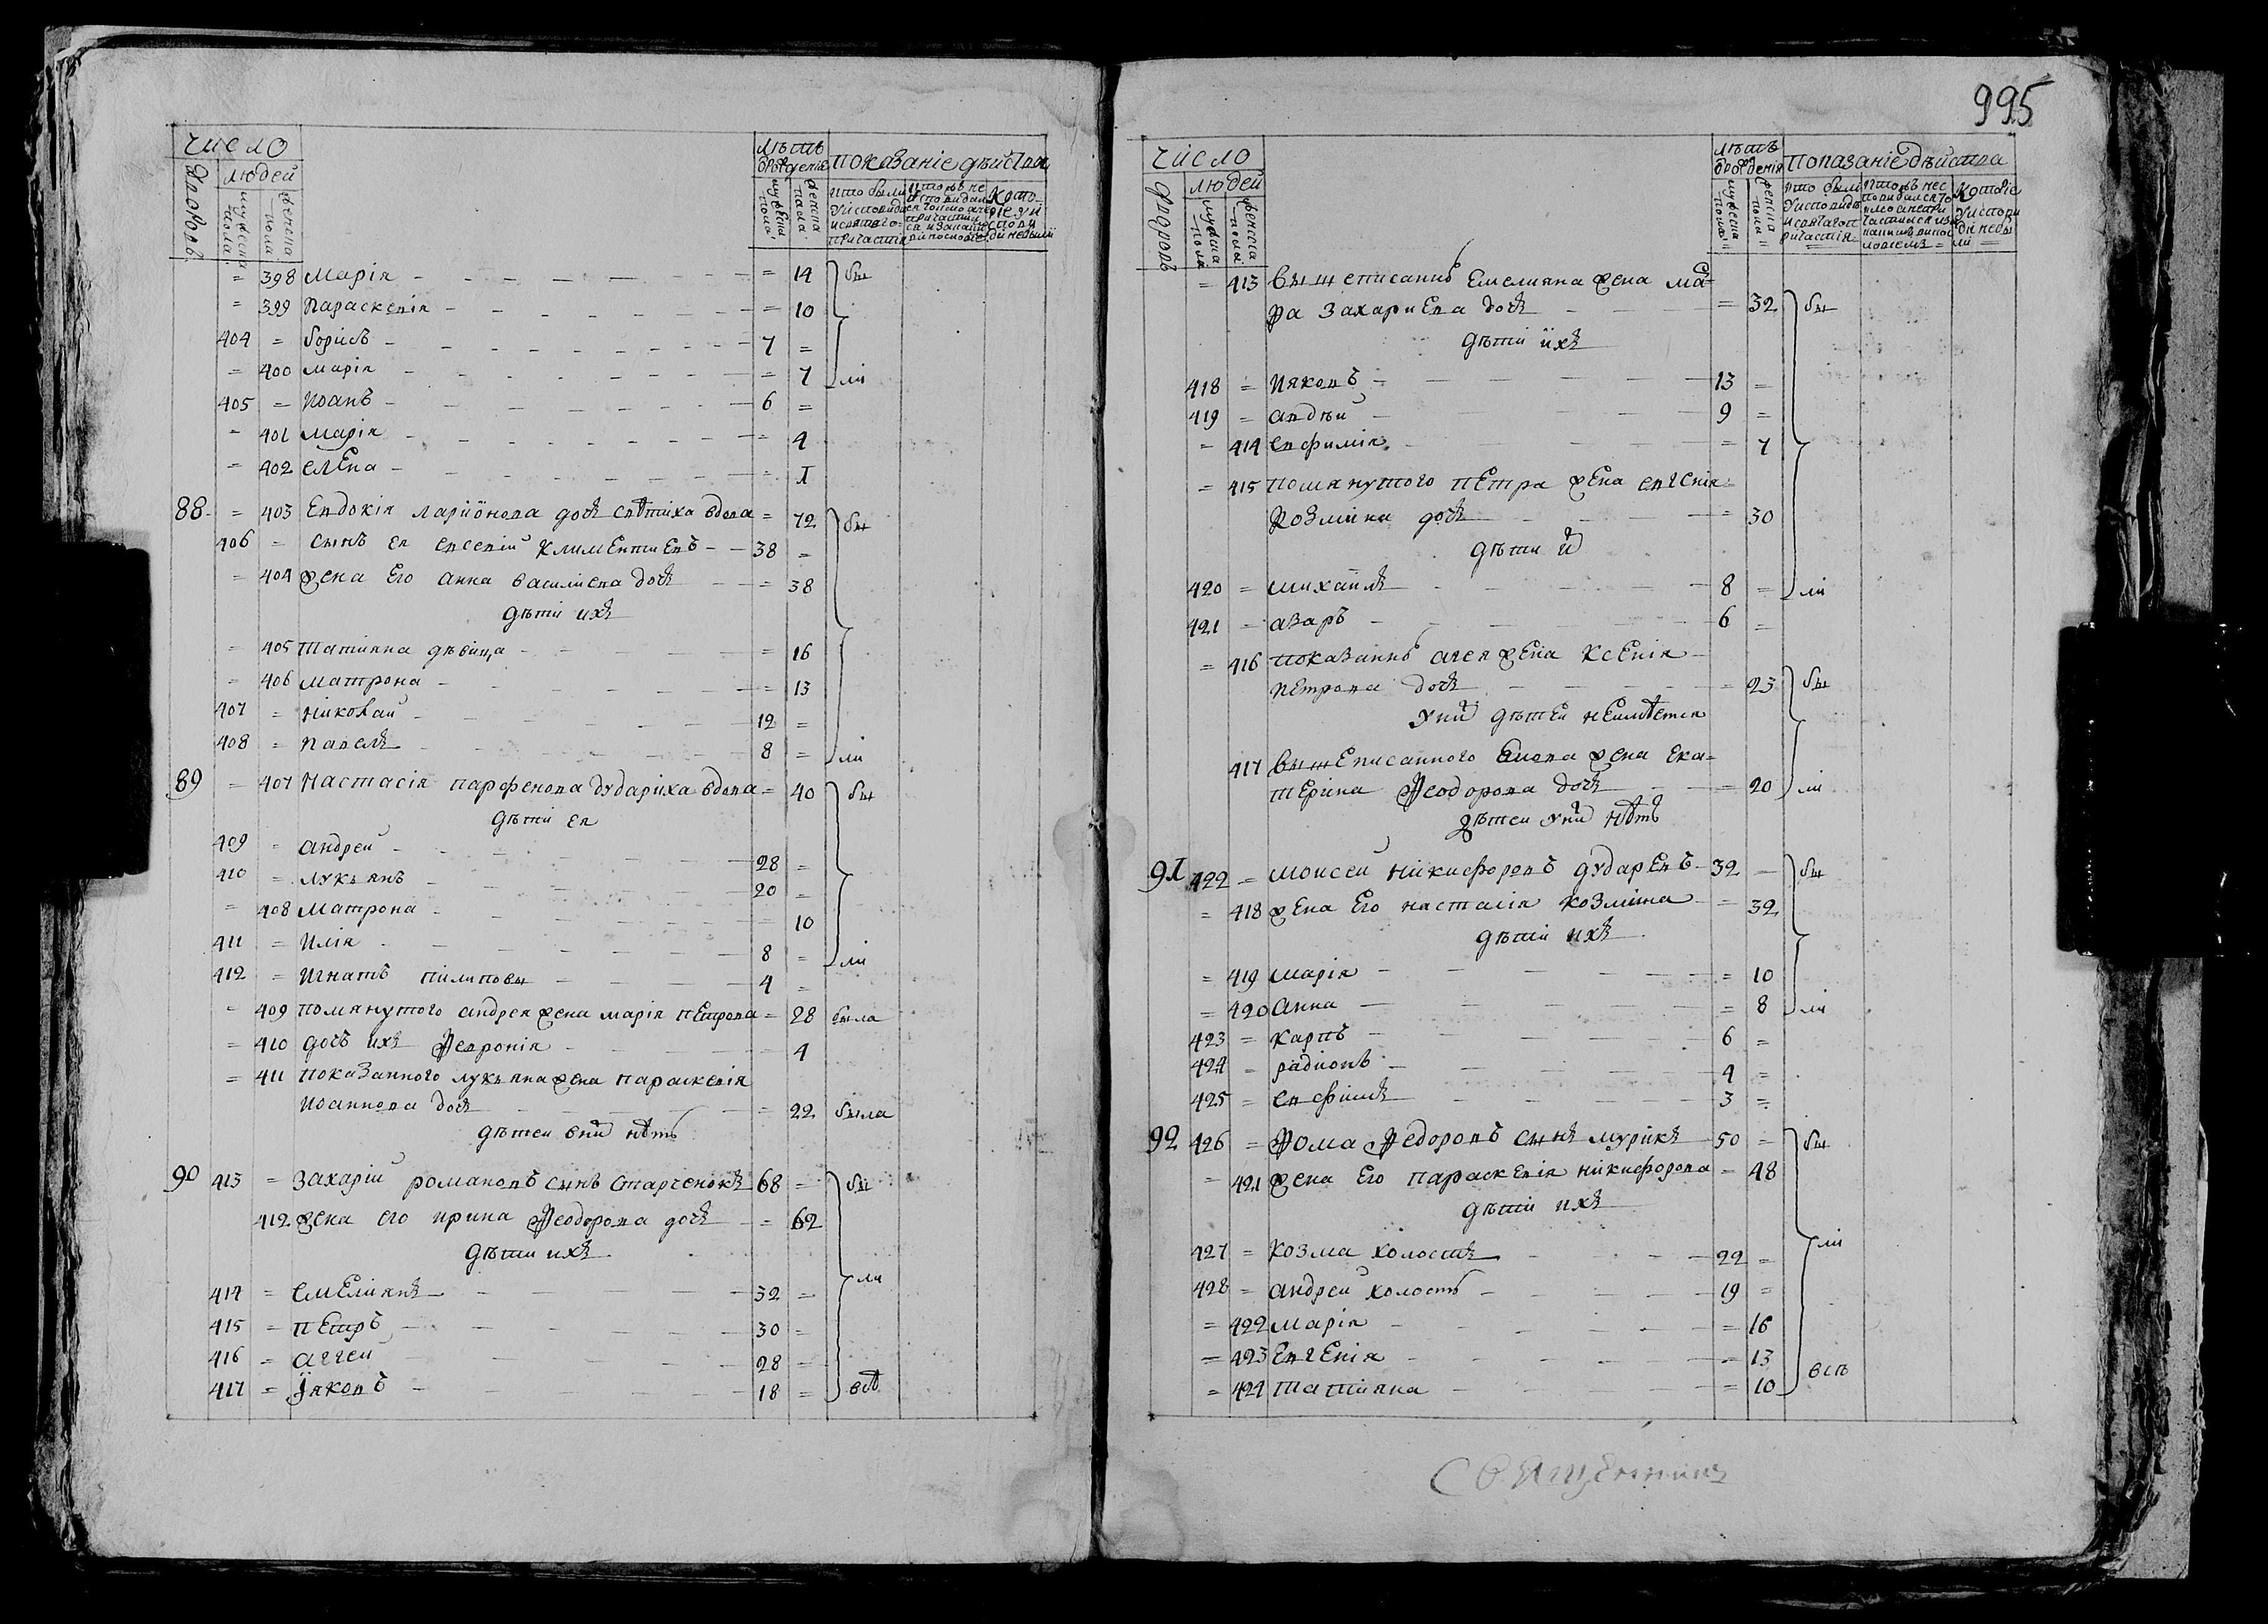 число
дворовъ
людей
мужеска пола
женска пола
лѣтъ
отрожденія
мужеска пола
женска пола
показаніе дѣйства
= 398 Марія = 14 бы
= 399 Параскевія = 10
404 = Борисъ 7 =
= 400 Марія = 7 ли
405 = Иоанъ 6 =
= 401 Марія = 4
= 402 Елена = 1
88 = 403 Евдокія Ларионова дочь вдова = 72 бы
406 = сынъ ея Евсевій Климентиевъ 38 =
= 404 жена его Анна василиева дочь = 38
дѣти ихъ
= 405 Татияна дѣвица = 16
= 406 Матрона = 13
407 = Николай 12 =
408 = Павелъ 8 = ли
89 = 407 Настасія парфенова дудариха вдова = 40 бы
дѣти ея
409 = андрей 28 =
410 = лукьянъ 20 =
= 408 Матрона = 10
411 = Илія 8 = ли
412 = Игнатъ пилиповы 4 =
= 409 помянутого андрея жена марія петрова = 28 была
= 410 дочь ихъ Февронія 4
= 411 показанного лукьяна жена параскевія
Иоаннова дочь = 22 была
дѣтей у ниⷯ нѣтъ
90 413 = Захарій романовъ сынъ Старченокъ 68 = бы
412 жена его ирина Феодорова дочь = 62
дѣти ихъ
414 = Емелиянъ 32 = ли
415 = Петръ 30 =
416 = аггей 28 =
417 = Їяковъ 18 = всѣ
995
число
дворовъ
людей
мужеска пола
женска пола
лѣтъ
отрожденія
мужеска пола
женска пола
показаніе дѣйства
= 413 вышеписаннⷢ Емелияна жена ма
ра Захариева дочь = 32 бы
дѣти ихъ
418 = Ияковъ 13 =
419 = андѣй 9 =
= 414 евфимія = 7
= 415 помянутого петра жена евгенія
Козмина дочь = 30
дѣти иⷯ
420 = михаилъ 8 = ли
421 = азаръ 6 =
= 416 показаннⷢ агея жена Ксенія
петрова дочь = 23 бы
у ниⷯ дѣтей неимѣется
417 вышеписанного якова жена ека=
терина Феодорова дочь = 20 ли
дѣтей у ниⷯ нѣтъ
91 422 = моисей никифоровъ дударевъ 32 = бы
= 418 жена его настасія козмина = 32
дѣти ихъ
= 419 марія = 10
= 420 анна = 8 ли
423 = карпъ 6 =
424 = радионъ 4 =
425 = евфимъ 3 =
92 426 = Фома Федоровъ сынъ мурикъ 50 = бы
= 421 жена его параскевія никифорова = 48
дѣти ихъ
427 = козма холостъ 22 = ли
428 = андрей холостъ 19 =
= 422 марія = 16
= 423 Евгенія = 13
= 424 татияна = 10 всѣ
Священникъ